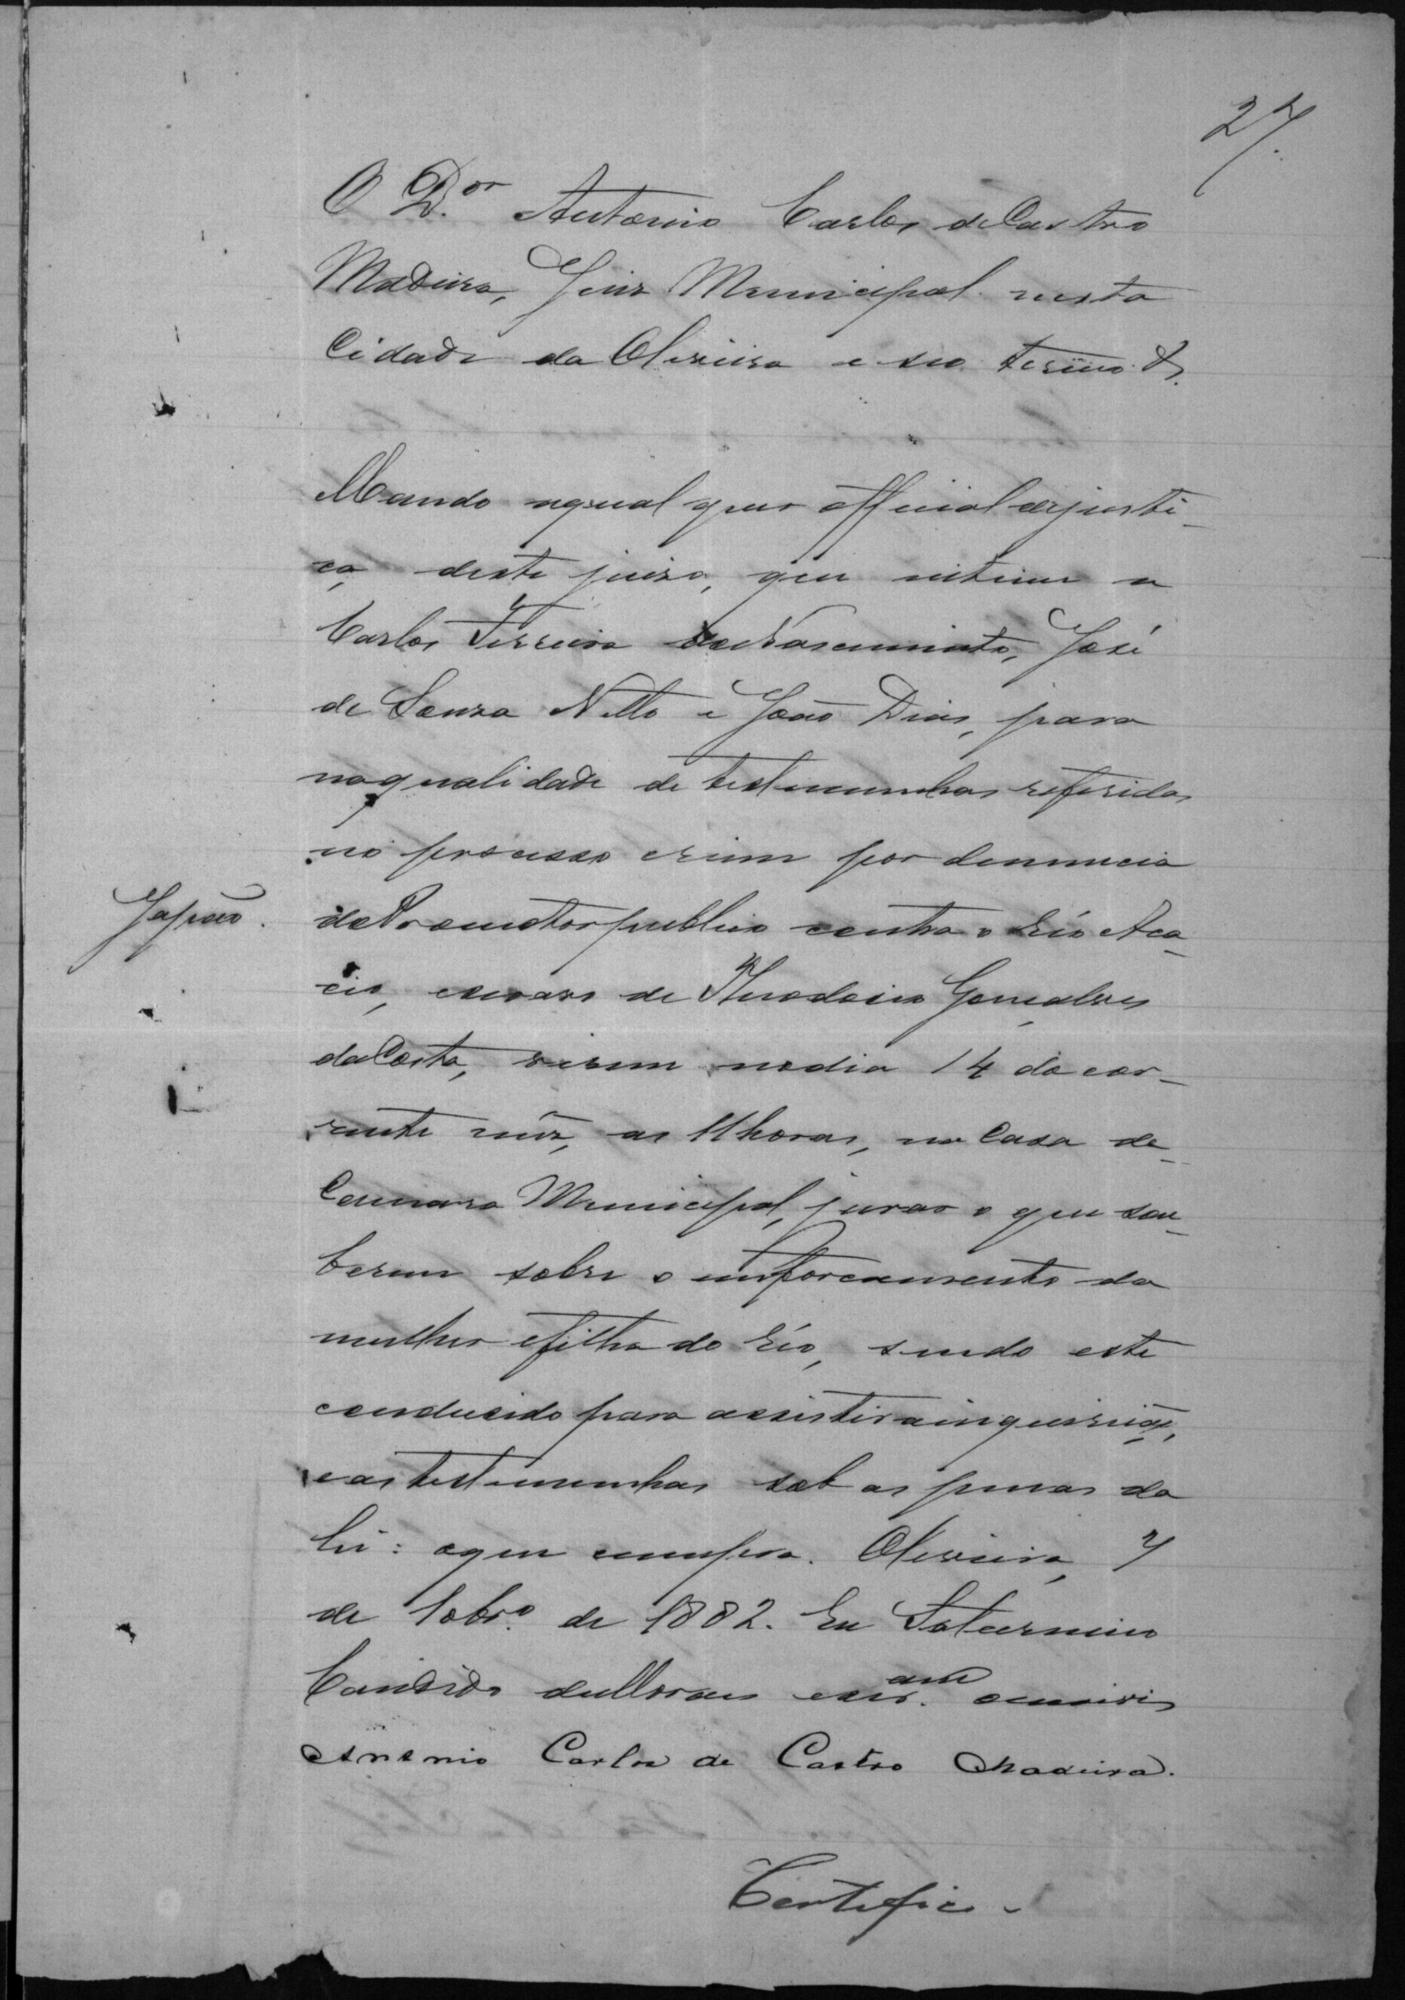 27.
O D.or Antonio Carlos de Castro
Madeira, Juiz Municipal nesta
Cidade da Oliveira e seo termo &.
Mando aqual quer official dejusti-
ça deste juizo, que intime a
Carlos Ferreira do Nascimento, José
de Souza Netto e João Dias, para
naqualidade de testemunhas referidas
no processo crime por denuncia
Japão.
do Promotor publico contra o Réo Aca-
cio, escravo de Theodosio Gonçalves
da Costa, virem nodia 14 do cor-
rente mez, as 11 horas, na Casa da
Camara Municipal, jurar o que sou-
berem sobre o emforcamento da
mulher efilha do Réo, sendo este
conducido para assistir a inquirição,
eas testemunhas sob as penas da
lei: oque cumpra. Oliveira, 7
de 10br.o de 1882. Eu Saturnino
Candido de Moraes escr.am escrevi
Antonio Carlos de Castro Madeira.
Certifico